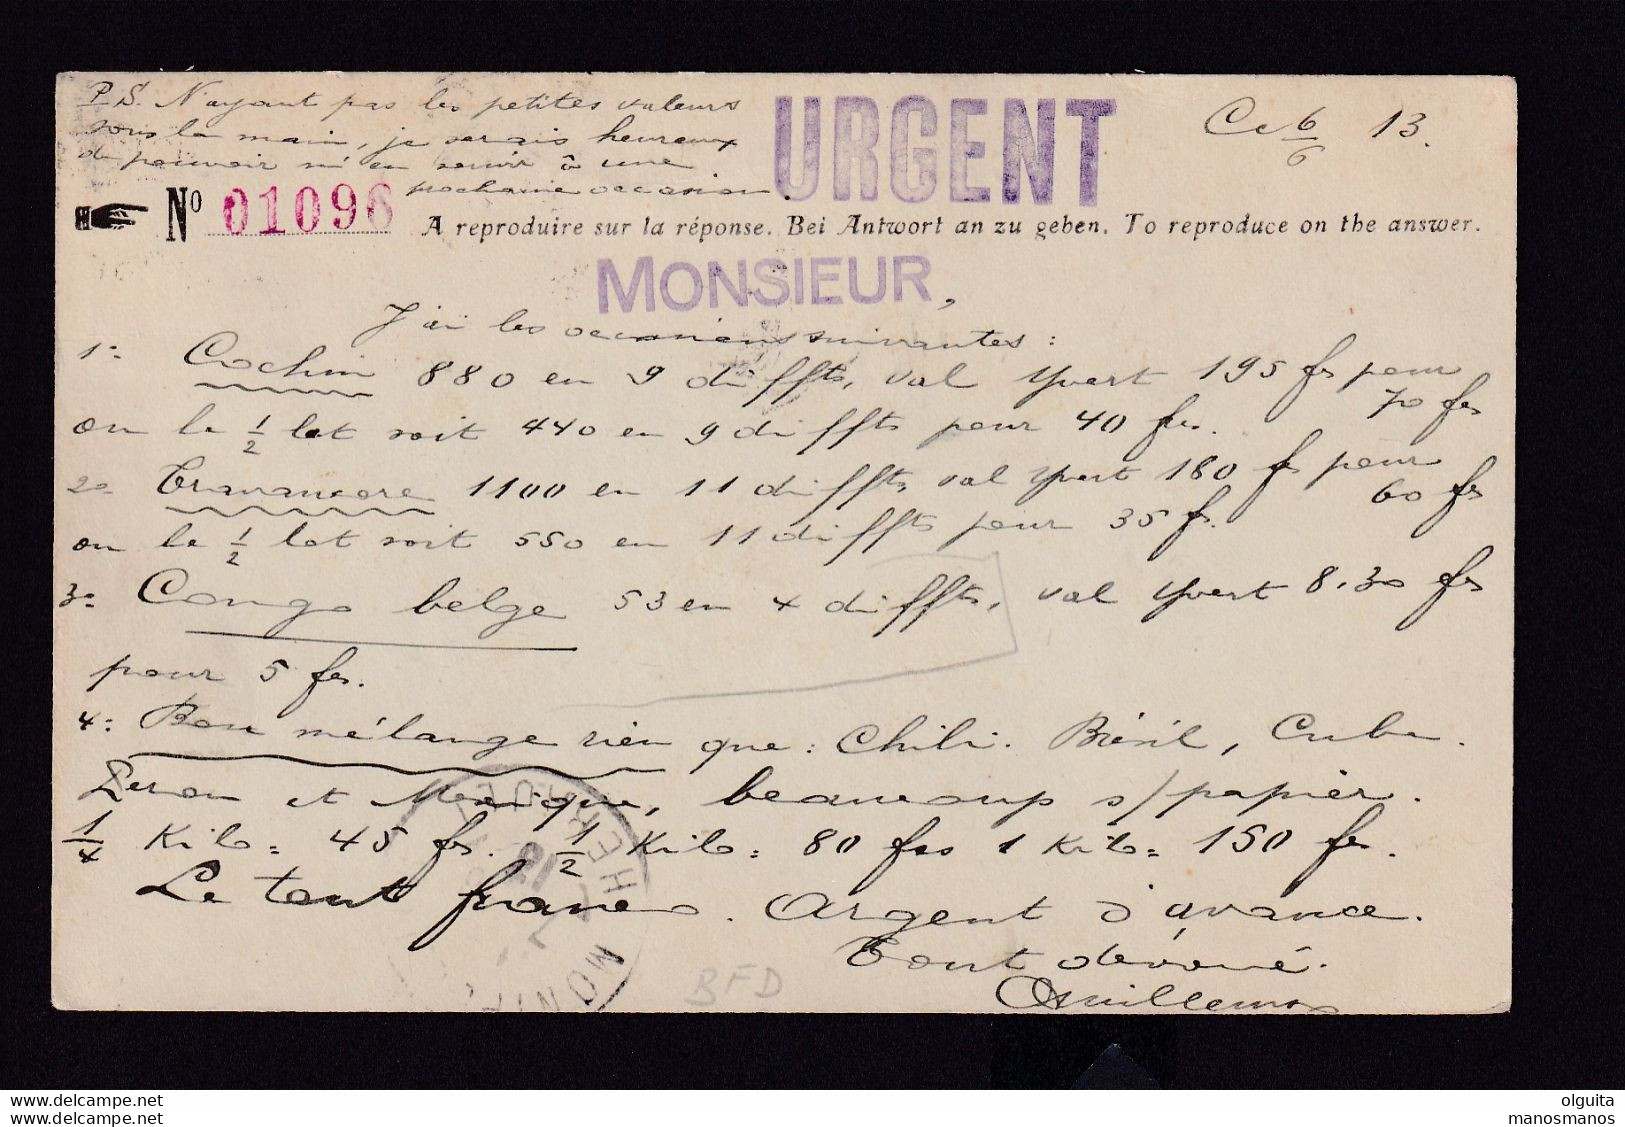 P.S. N'ayant pas les petites valeurs
sous la main, je serais heureux
de pouvoir m'en servir à une
prochaine occasion.
URGENT
Ce 6/6 13.
No 01096 A reproduire sur la réponse. Bei Antwort an zu geben. To reproduce on the answer.
MONSIEUR,
J'ai les occasions suivantes :
1º Cochin 880 en 9 diffts, val Yvert 195 frs pour
70 frs
ou le 1/2 lot soit 440 en 9 diffts pour 40 frs.
2º Travancore 1100 en 11 diffts, val Yvert 180 frs pour
60 frs
ou le 1/2 lot soit 550 en 11 diffts pour 35 frs.
3º Congo belge 53 en 4 diffts, val Yvert 8.30 frs
pour 5 frs.
4º Bon mélange rien que : Chili. Brésil, Cuba.
Pérou et Mexique, beaucoup s/papier.
1/4 Kilo = 45 frs. 1/2 Kilo = 80 frs 1 Kilo = 150 frs.
Le tout franco. Argent d'avance.
Tout dévoué.
BFD
olguita
manosmanos
www.delcampe.net
www.delcampe.net